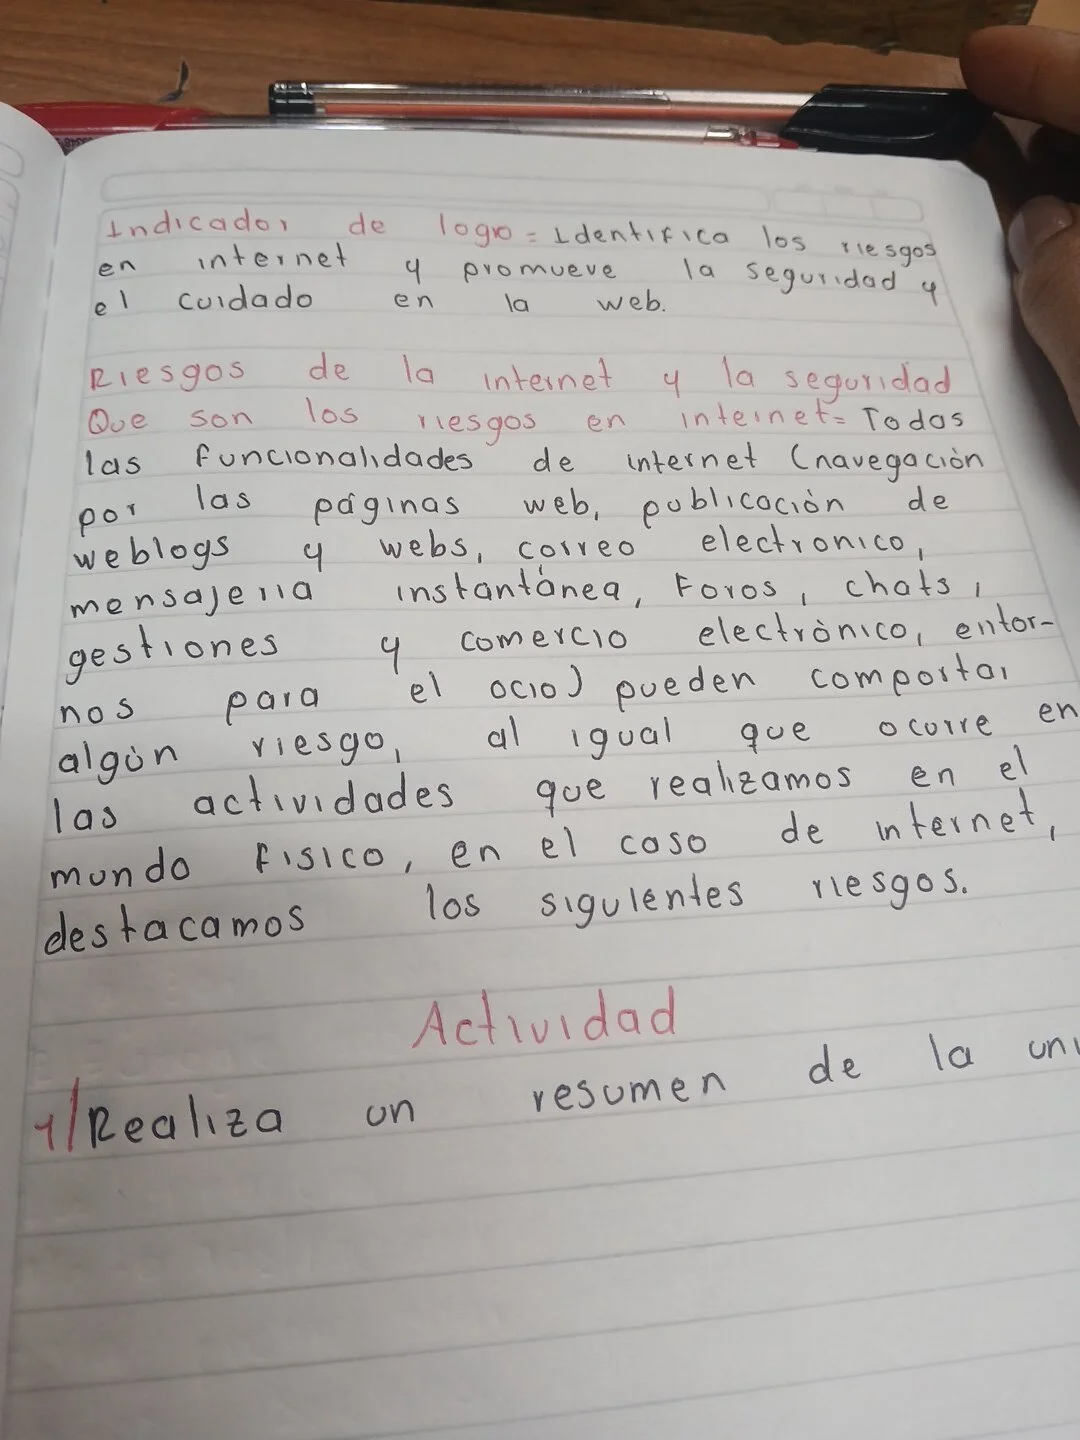 Indicador de logro = Identifica los riesgos
en internet y promueve la seguridad y
el cuidado en la web.
Riesgos de la internet y la seguridad
Que son los riesgos en internet= Todas
las funcionalidades de internet (navegación
por las páginas web, publicación de
weblogs y webs, correo electronico,
mensajeria instantánea, Foros, chats,
gestiones y comercio electrónico, entor-
nos para el ocio) pueden comportar
algún riesgo, al igual que ocurre en
las actividades que realizamos en el
mundo fisico, en el caso de internet,
destacamos los siguientes riesgos.
Actividad
1/Realiza un resumen de la